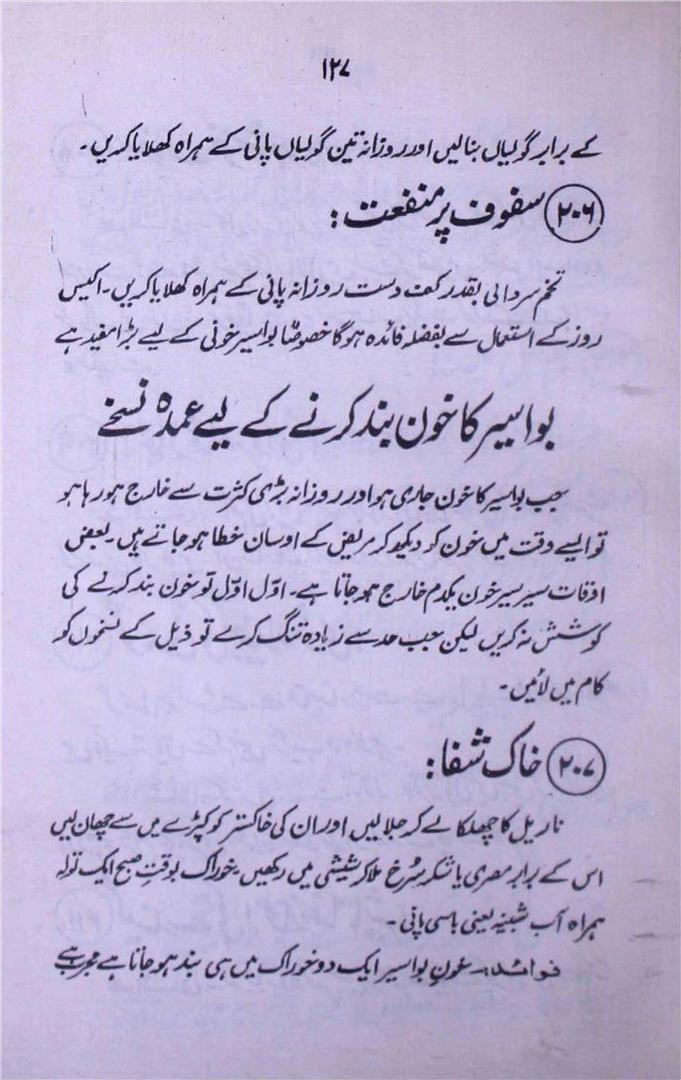 ۱۲۷
کے برابر گولیاں بنالیں اور روزانہ تین گولیاں پانی کے ہمراہ کھلایا کریں۔
۲۰۶ سفوف پر منفعت:
تخم سردالی بقدر کف دست روزانہ پانی کے ہمراہ کھلایا کریں۔ اکیس
روز کے استعمال سے بفضلہ فائدہ ہوگا خصوصًا بواسیر خونی کے لیے بڑا مفید ہے
بواسیر کا خون بند کرنے کے لیے عمدہ نسخے
جب بواسیر کا خون جاری ہو اور روزانہ بڑی کثرت سے خارج ہو رہا ہو
تو ایسے وقت میں خون کو دیکھ کر مریض کے اوسان خطا ہو جاتے ہیں۔ بعض
اوقات سیر سیر خون یکدم خارج ہو جاتا ہے۔ اوّل اوّل تو خون بند کرنے کی
کوشش نہ کریں لیکن جب حد سے زیادہ تنگ کرے تو ذیل کے نسخوں کو
کام میں لائیں۔
۲۰۷ خاک شفا:
ناریل کا چھلکا لے کر جلالیں اور ان کی خاکستر کو کپڑے میں سے چھان لیں
اس کے برابر مصری یا شکر سُرخ ملا کر شیشی میں رکھیں۔ خوراک بوقتِ صبح ایک تولہ
ہمراہ آب شبینہ یعنی باسی پانی۔
فوائد:۔ خونِ بواسیر ایک دو خوراک میں ہی بند ہو جاتا ہے مجرب ہے